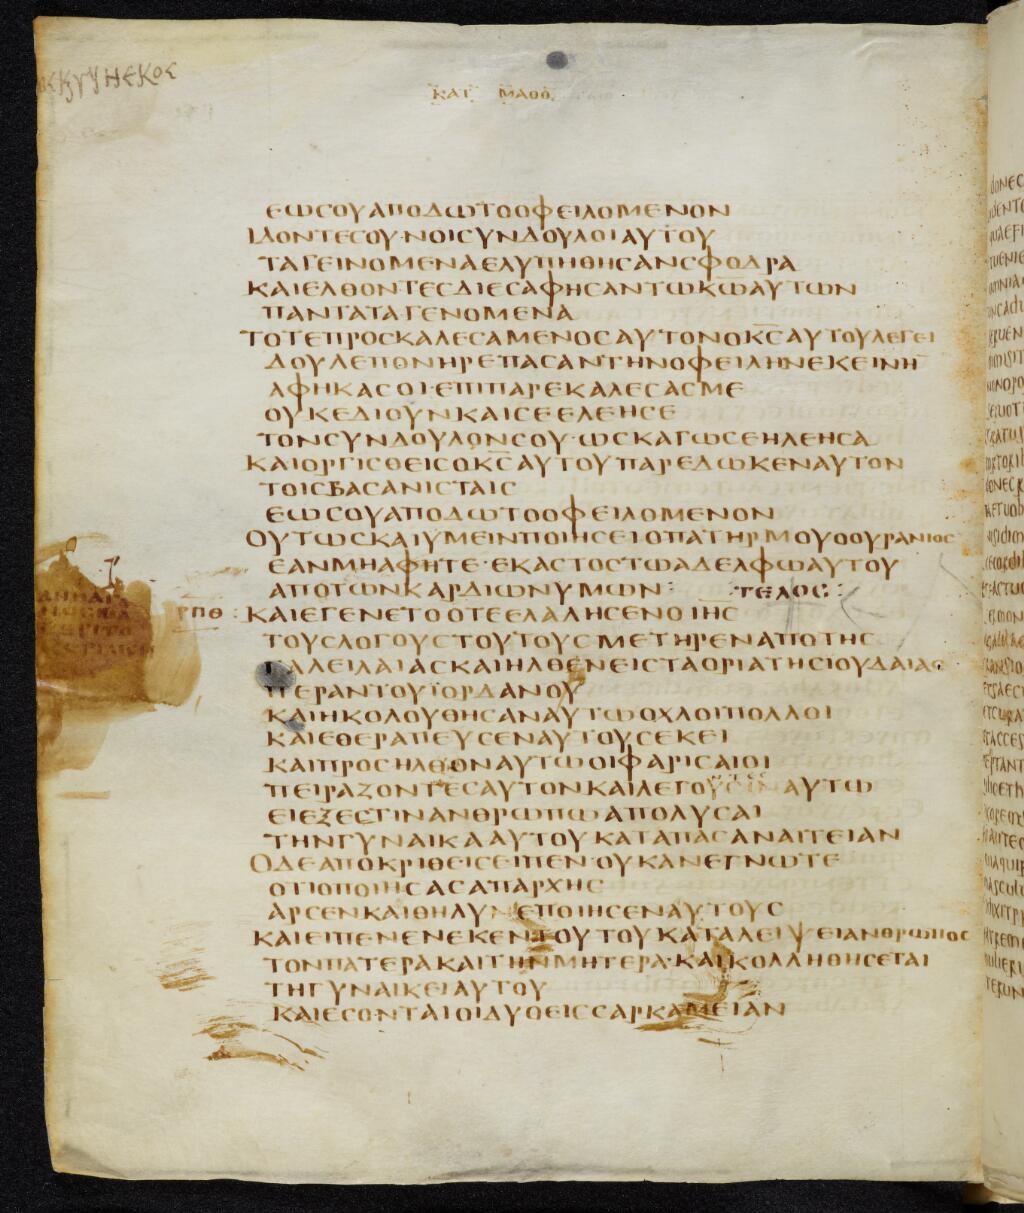 ΚΑΤ ΜΑΘΘ
ΕΩΣΟΥΑΠΟΔΩΤΟΟΦΕΙΛΟΜΕΝΟΝ
ΙΔΟΝΤΕΣΟΥΝΟΙΣΥΝΔΟΥΛΟΙΑΥΤΟΥ
ΤΑΓΕΙΝΟΜΕΝΑΕΛΥΠΗΘΗΣΑΝΣΦΟΔΡΑ
ΚΑΙΕΛΘΟΝΤΕΣΔΙΕΣΑΦΗΣΑΝΤΩΚΩΑΥΤΩΝ
ΠΑΝΤΑΤΑΓΕΝΟΜΕΝΑ
ΤΟΤΕΠΡΟΣΚΑΛΕΣΑΜΕΝΟΣΑΥΤΟΝΟΚΣΑΥΤΟΥΛΕΓΕΙ
ΔΟΥΛΕΠΟΝΗΡΕΠΑΣΑΝΤΗΝΟΦΕΙΛΗΝΕΚΕΙΝΗ
ΑΦΗΚΑΣΟΙ·ΕΠΙΠΑΡΕΚΑΛΕΣΑΣΜΕ
ΟΥΚΕΔΙΟΥΝΚΑΙΣΕΕΛΕΗΣΕ
ΤΟΝΣΥΝΔΟΥΛΟΝΣΟΥ·ΩΣΚΑΓΩΣΕΗΛΕΗΣΑ
ΚΑΙΟΡΓΙΣΘΕΙΣΟΚΣΑΥΤΟΥΠΑΡΕΔΩΚΕΝΑΥΤΟΝ
ΤΟΙΣΒΑΣΑΝΙΣΤΑΙΣ
ΕΩΣΟΥΑΠΟΔΩΤΟΟΦΕΙΛΟΜΕΝΟΝ
ΟΥΤΩΣΚΑΙΥΜΕΙΝΠΟΙΗΣΕΙΟΠΑΤΗΡΜΟΥΟΟΥΡΑΝΙΟΣ
ΕΑΝΜΗΑΦΗΤΕ·ΕΚΑΣΤΟΣΤΩΑΔΕΛΦΩΑΥΤΟΥ
ΑΠΟΤΩΝΚΑΡΔΙΩΝΥΜΩΝ: ΤΕΛΟΣ:
ΡΠΘ: ΚΑΙΕΓΕΝΕΤΟΟΤΕΕΛΑΛΗΣΕΝΟΙΗΣ
ΤΟΥΣΛΟΓΟΥΣΤΟΥΤΟΥΣΜΕΤΗΡΕΝΑΠΟΤΗΣ
ΓΑΛΕΙΛΑΙΑΣΚΑΙΗΛΘΕΝΕΙΣΤΑΟΡΙΑΤΗΣΙΟΥΔΑΙΑΣ
ΠΕΡΑΝΤΟΥΪΟΡΔΑΝΟΥ
ΚΑΙΗΚΟΛΟΥΘΗΣΑΝΑΥΤΩΟΧΛΟΙΠΟΛΛΟΙ
ΚΑΙΕΘΕΡΑΠΕΥΣΕΝΑΥΤΟΥΣΕΚΕΙ
ΚΑΙΠΡΟΣΗΛΘΟΝΑΥΤΩΟΙΦΑΡΙΣΑΙΟΙ
ΠΕΙΡΑΖΟΝΤΕΣΑΥΤΟΝΚΑΙΛΕΓΟΥΣΙΝΑΥΤΩ
ΕΙΕΞΕΣΤΙΝΑΝΘΡΩΠΩΑΠΟΛΥΣΑΙ
ΤΗΝΓΥΝΑΙΚΑΑΥΤΟΥΚΑΤΑΠΑΣΑΝΑΙΤΕΙΑΝ
ΟΔΕΑΠΟΚΡΙΘΕΙΣΕΙΠΕΝ·ΟΥΚΑΝΕΓΝΩΤΕ
ΟΤΙΟΠΟΙΗΣΑΣΑΠΑΡΧΗΣ
ΑΡΣΕΝΚΑΙΘΗΛΥΝΕΠΟΙΗΣΕΝΑΥΤΟΥΣ
ΚΑΙΕΙΠΕΝΕΝΕΚΕΝΤΟΥΤΟΥΚΑΤΑΛΕΙΨΕΙΑΝΘΡΩΠΟΣ
ΤΟΝΠΑΤΕΡΑΚΑΙΤΗΝΜΗΤΕΡΑ·ΚΑΙΚΟΛΛΗΘΗΣΕΤΑΙ
ΤΗΓΥΝΑΙΚΕΙΑΥΤΟΥ
ΚΑΙΕΣΟΝΤΑΙΟΙΔΥΟΕΙΣΣΑΡΚΑΜΕΙΑΝ